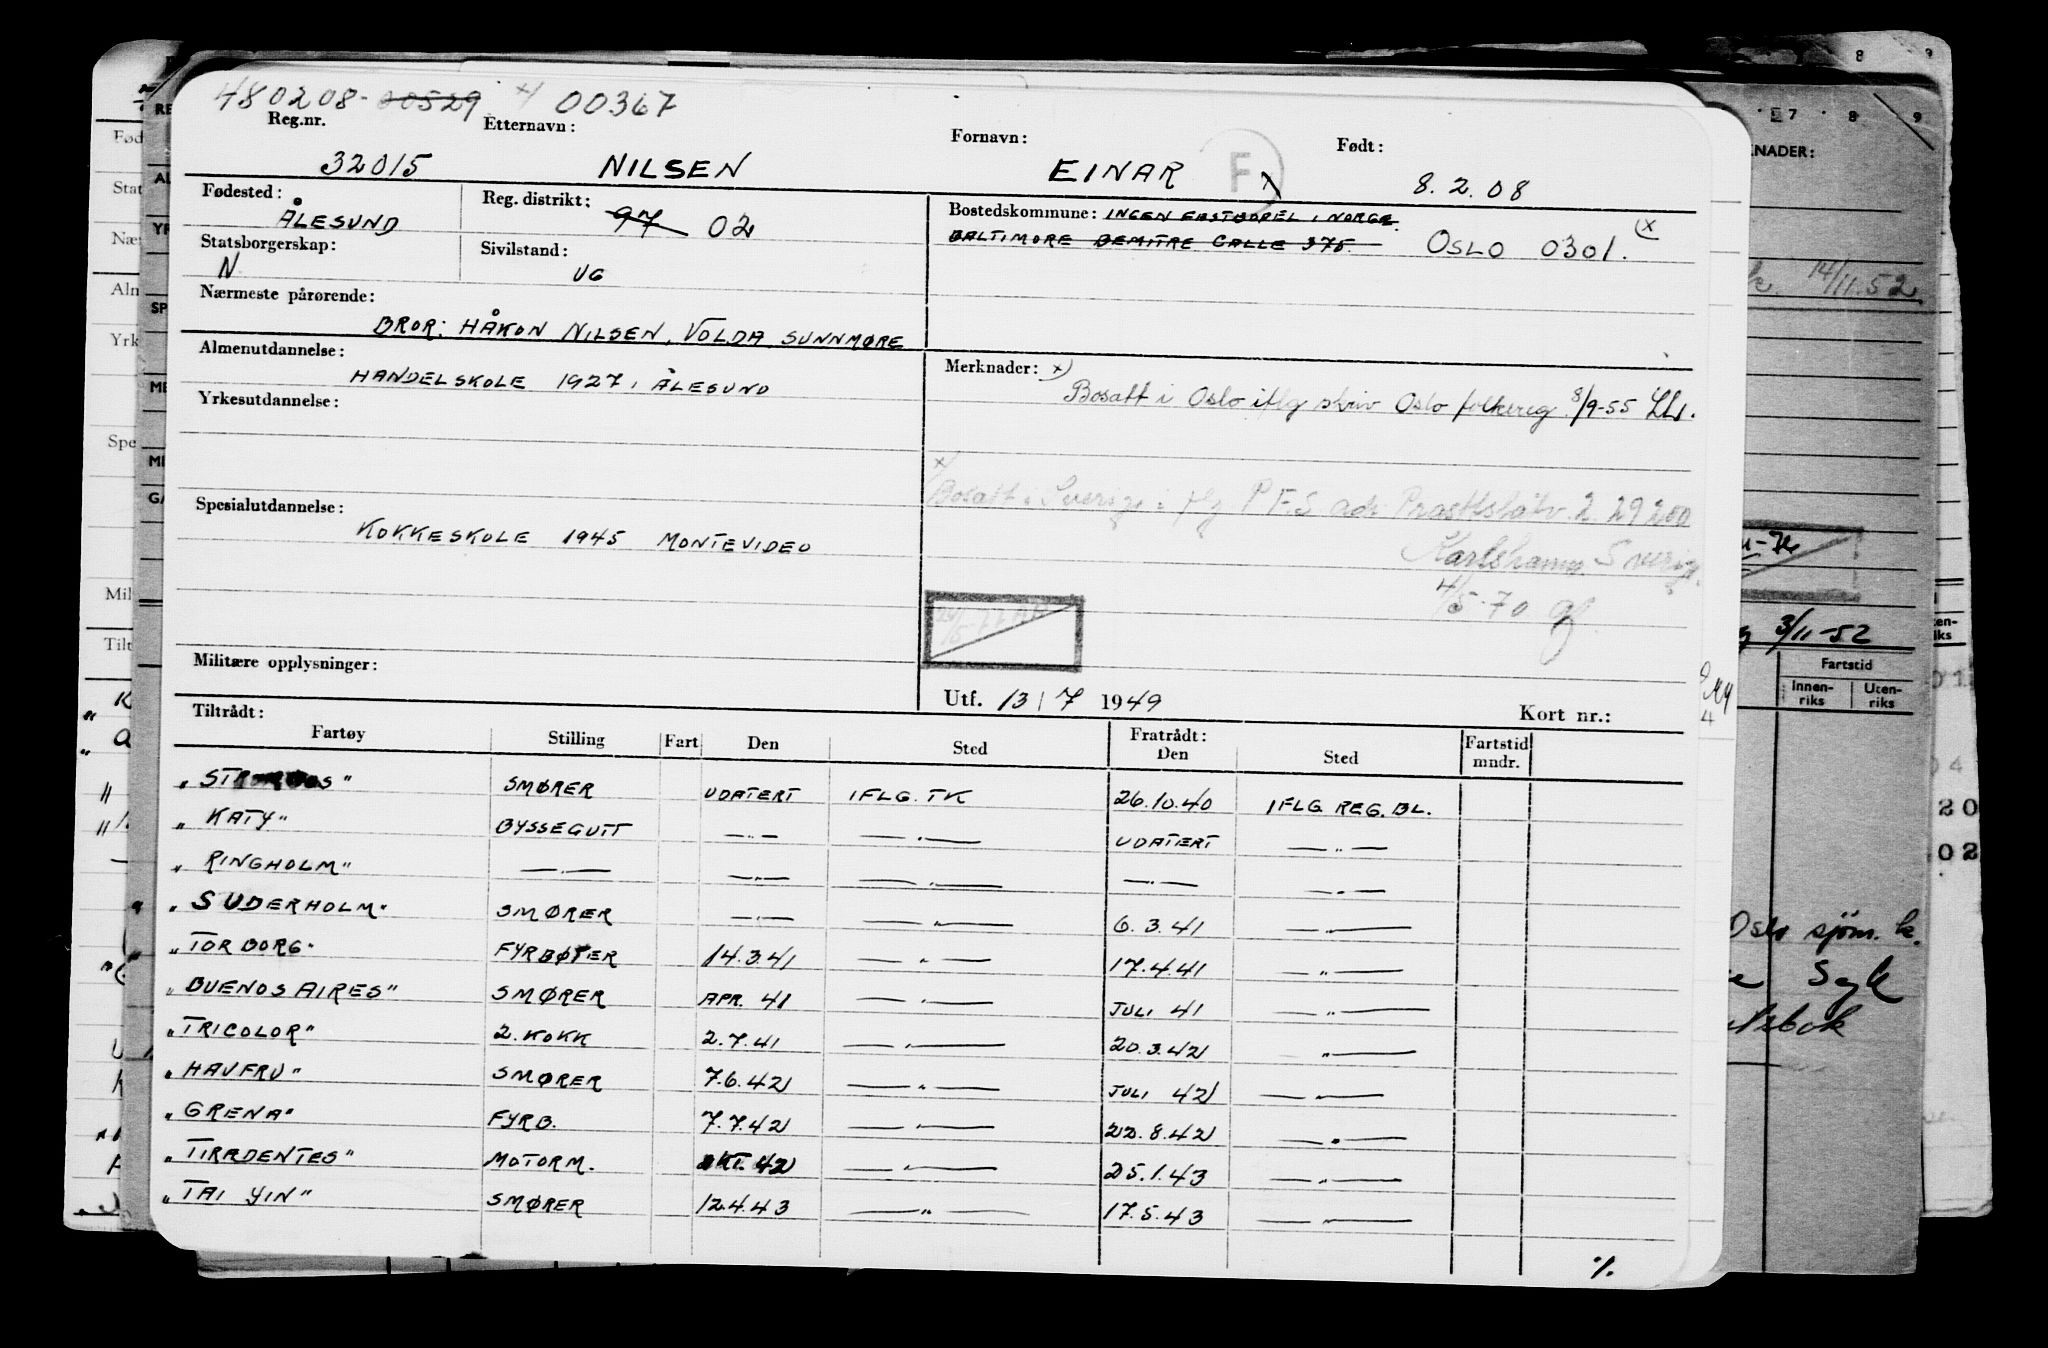 480208-00529 x/ 00367
Reg.nr. Etternavn: Fornavn: Født:
32015 NILSEN EINAR F x 8. 2. 08
Fødested: Reg. distrikt: Bostedskommune: INGEN FAST BOPEL I NORGE
ÅLESUND 97 02 BALTIMORE DEMITRE CALLE 375. OSLO 0301. (x
Statsborgerskap: Sivilstand:
N UG
Nærmeste pårørende:
BROR: HÅKON NILSEN, VOLDA, SUNNMØRE
Almenutdannelse: Merknader: x)
HANDELSKOLE 1927, ÅLESUND Bosatt i Oslo iflg skriv Oslo folkereg. 8/9-55
Yrkesutdannelse:
x/
Bosatt i Sverige i flg P F S adr. 2 29200
Spesialutdannelse:
KOKKESKOLE 1945 MONTEVIDEO Karlshamn Sverige.
4/5-70
Militære opplysninger:
Utf. 13 / 7 1949 Kort nr.:
Tiltrådt: Fratrådt: Fartstid
Fartøy Stilling Fart Den Sted Den Sted mndr.
SMØRER UDATERT IFLG. TK 26.10.40 IFLG REG. BL.
„ KATY" BYSSEGUTT —„— —„— UDATERT —„—
„ RINGHOLM" —„— —„— —„— —„— —„—
„ SUDERHOLM" SMØRER —„— —„— 6. 3. 41 —„—
„ TORBORG" FYRBØTER 14.3.41 —„— 17.4.41 —„—
„ BUENOS AIRES" SMØRER APR. 41 —„— JULI 41 —„—
„ TRICOLOR" 2. KOKK 2.7.41 —„— 20.3.42 —„—
„ HAVFRU" SMØRER 7.6.42 —„— JULI 42 —„—
„ GRENA" FYRB. 7.7.42 —„— 22.8.42 —„—
„ TIRADENTES" MOTORM. OKT. 42 —„— 25.1.43 —„—
„ TAI YIN" SMØRER 12.4.43 —„— 17.5.43 —„—
%
7 8 9
14/11.52
3/11-52
Fartstid
Innen-
riks Uten-
riks
Oslo sjøm. k.